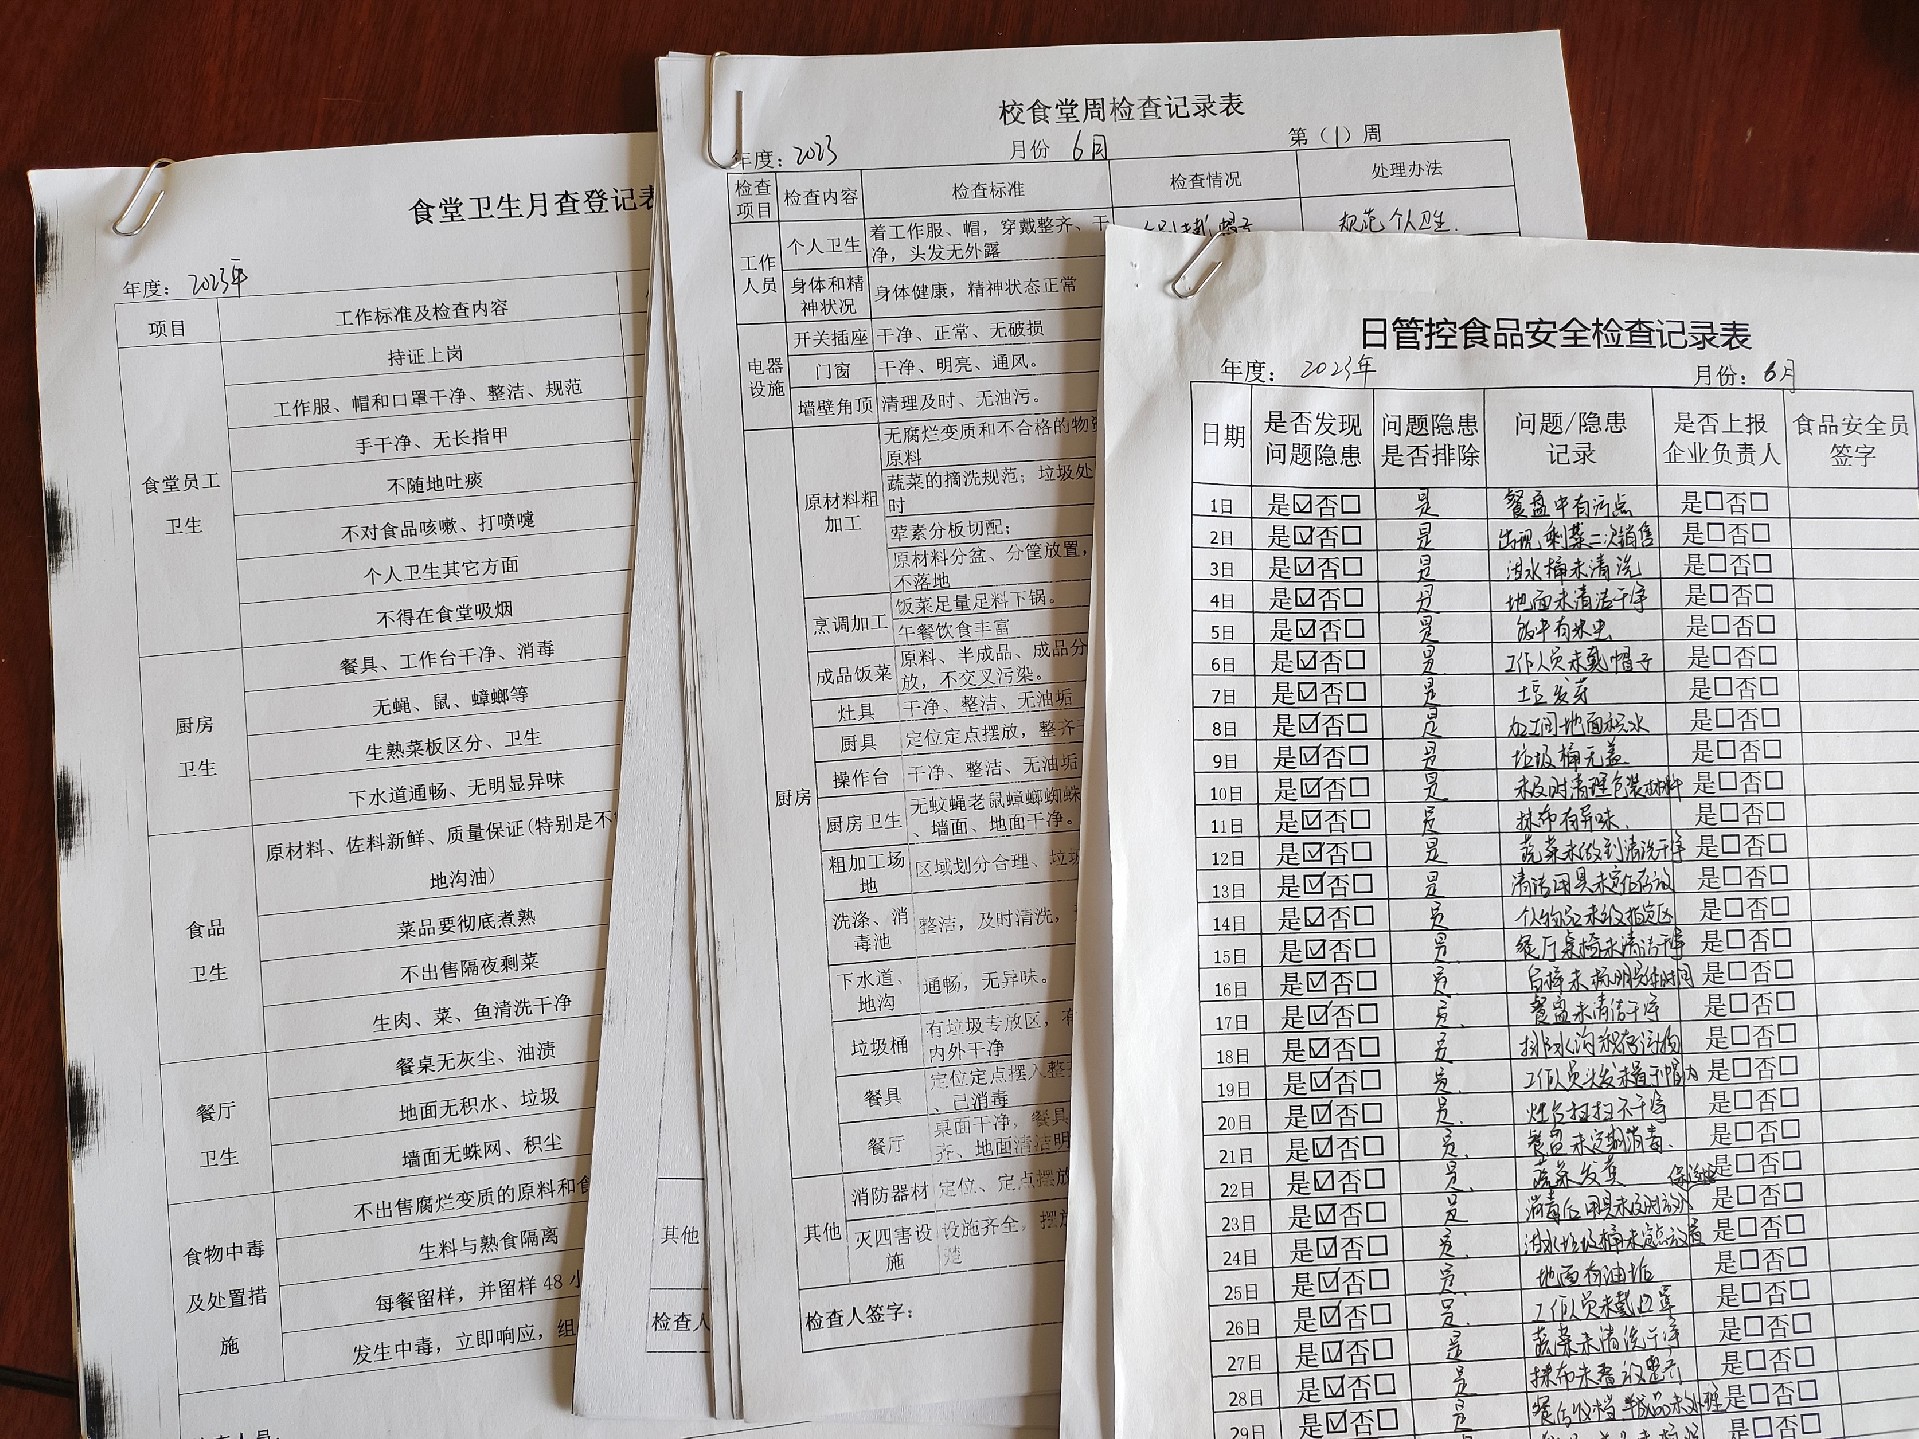 食堂卫生月查登记表
年度：2023年
项目 工作标准及检查内容
食堂员工
卫生
持证上岗
工作服、帽和口罩干净、整洁、规范
手干净、无长指甲
不随地吐痰
不对食品咳嗽、打喷嚏
个人卫生其它方面
不得在食堂吸烟
厨房
卫生
餐具、工作台干净、消毒
无蝇、鼠、蟑螂等
生熟菜板区分、卫生
下水道通畅、无明显异味
食品
卫生
原材料、佐料新鲜、质量保证(特别是不
地沟油)
菜品要彻底煮熟
不出售隔夜剩菜
生肉、菜、鱼清洗干净
餐厅
卫生
餐桌无灰尘、油渍
地面无积水、垃圾
墙面无蛛网、积尘
食物中毒
及处置措
施
不出售腐烂变质的原料和食
生料与熟食隔离
每餐留样，并留样 48 小
发生中毒，立即响应，组
其他
检查人
校食堂周检查记录表
年度：2023 月份 6月 第（1）周
检查
项目
检查内容 检查标准 检查情况 处理办法
工作
人员
个人卫生
着工作服、帽，穿戴整齐、干
净，头发无外露
规范个人卫生.
身体和精
神状况
身体健康，精神状态正常
电器
设施
开关插座 干净、正常、无破损
门窗 干净、明亮、通风。
墙壁角顶 清理及时、无油污。
厨房
原材料粗
加工
无腐烂变质和不合格的物资
原料
蔬菜的摘洗规范；垃圾处
时
荤素分板切配；
原材料分盆、分筐放置，
不落地
烹调加工
饭菜足量足料下锅。
午餐饮食丰富
成品饭菜
原料、半成品、成品分
放，不交叉污染。
灶具 干净、整洁、无油垢
厨具 定位定点摆放，整齐干
操作台 干净、整洁、无油垢
厨房卫生
无蚊蝇老鼠蟑螂蜘蛛
、墙面、地面干净。
粗加工场
地
区域划分合理、垃圾
洗涤、消
毒池
整洁，及时清洗，
下水道、
地沟
通畅，无异味。
垃圾桶
有垃圾专放区，有
内外干净
餐具
定位定点摆入整
、已消毒
餐厅
桌面干净，餐具
齐、地面清洁明
其他
消防器材 定位、定点摆放
灭四害设
施
设施齐全，摆放
楚
检查人签字：
日管控食品安全检查记录表
年度： 2023年 月份：6月
日期
是否发现
问题隐患
问题隐患
是否排除
问题/隐患
记录
是否上报
企业负责人
食品安全员
签字
1日 是☑否□ 是 餐盘中有污点 是□否□
2日 是☑否□ 是 出现剩菜二次销售 是□否□
3日 是☑否□ 是 泔水桶未清洗 是□否□
4日 是☑否□ 是 地面未清洁干净 是□否□
5日 是☑否□ 是 饭中有米虫 是□否□
6日 是☑否□ 是. 工作人员未戴帽子 是□否□
7日 是☑否□ 是 土豆发芽 是□否□
8日 是☑否□ 是 加工间地面积水 是□否□
9日 是☑否□ 是 垃圾桶无盖 是□否□
10日 是☑否□ 是 未及时清理包装材料 是□否□
11日 是☑否□ 是 抹布有异味. 是□否□
12日 是☑否□ 是 蔬菜未做到清洗干净 是□否□
13日 是☑否□ 是 清洁用具未定位存放 是□否□
14日 是☑否□ 是 个人物品未放指定区 是□否□
15日 是☑否□ 是. 餐厅桌椅未清洁干净 是□否□
16日 是☑否□ 是. 留样未标明具体时间 是□否□
17日 是☑否□ 是. 餐盘未清洁干净 是□否□
18日 是☑否□ 是 排水沟积存污物 是□否□
19日 是☑否□ 是. 工作人员头发未置于帽内 是□否□
20日 是☑否□ 是. 灶台打扫不干净 是□否□
21日 是☑否□ 是. 餐盘未定期消毒. 是□否□
22日 是☑否□ 是. 蔬菜发黄 是□否□
23日 是☑否□ 是 消毒后用具未及时放入保洁柜 是□否□
24日 是☑否□ 是. 泔水垃圾桶未定点放置 是□否□
25日 是☑否□ 是. 地面有油垢 是□否□
26日 是☑否□ 是. 工作人员未戴口罩 是□否□
27日 是☑否□ 是 蔬菜未清洗干净 是□否□
28日 是☑否□ 是 抹布未叠放整齐 是□否□
29日 是☑否□ 是 是□否□